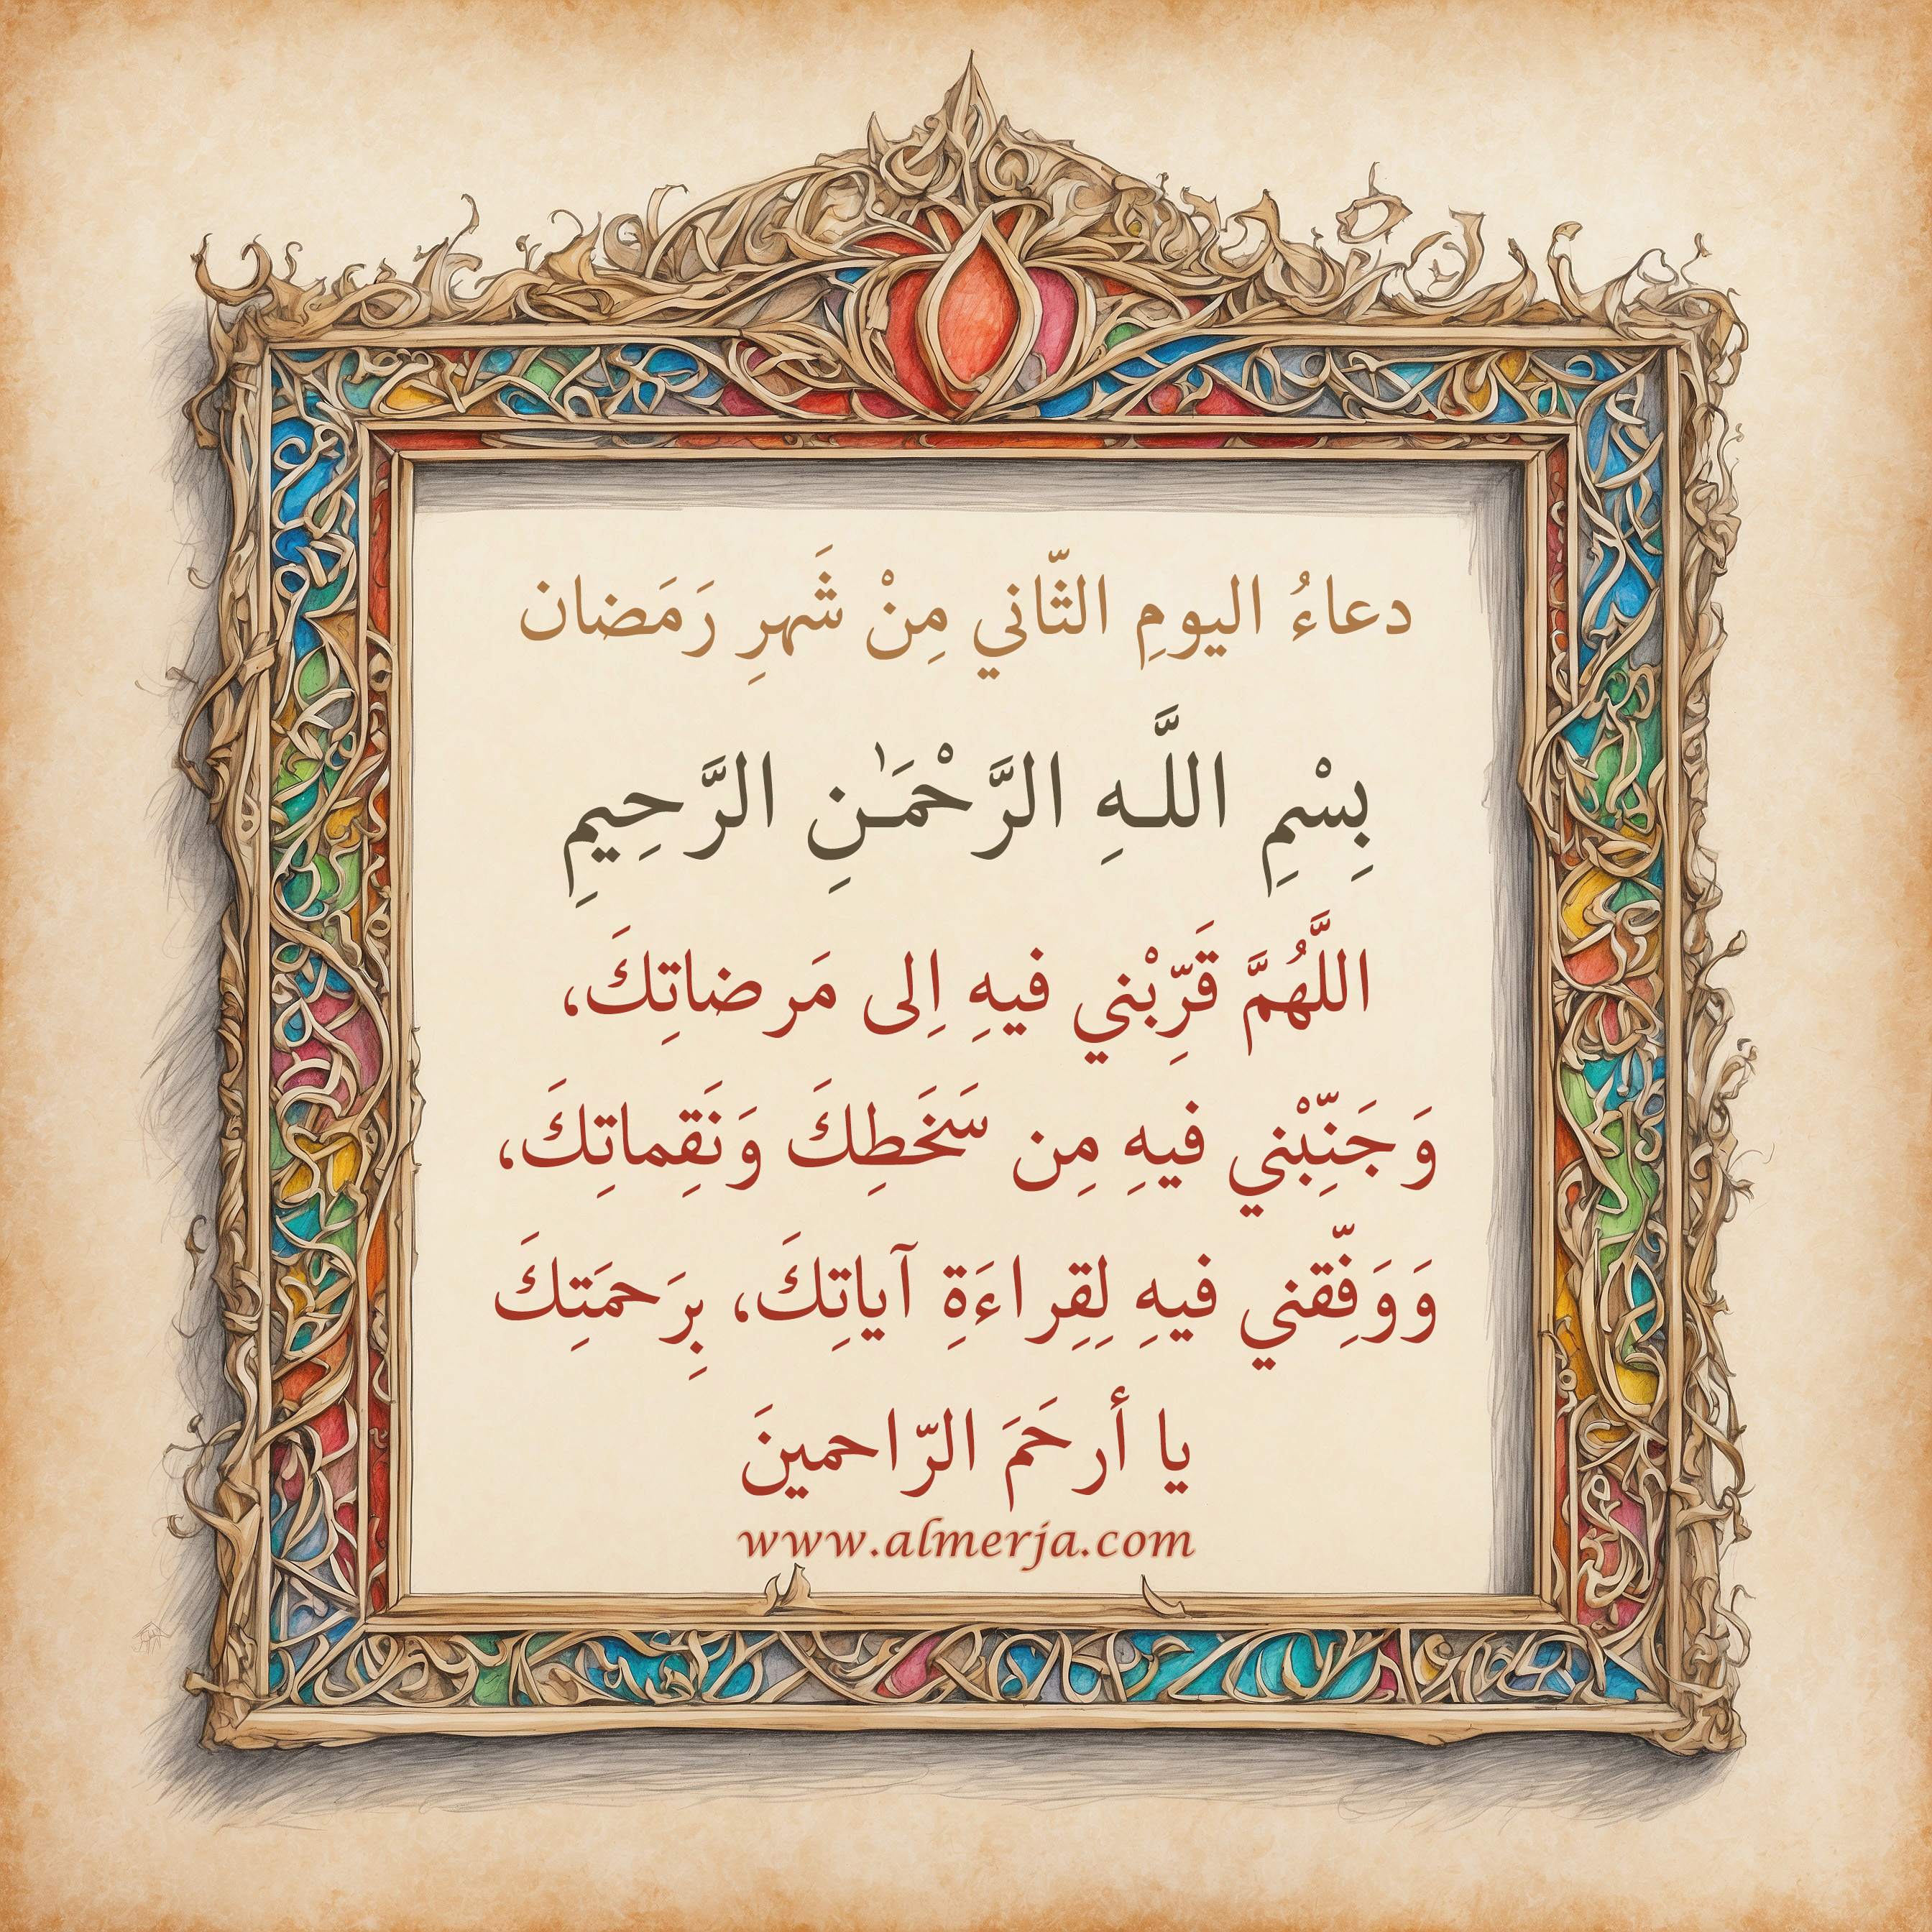 دعاءُ اليومِ الثّاني مِنْ شَهرِ رَمَضان
بِسْمِ اللَّـهِ الرَّحْمَـٰنِ الرَّحِيمِ
اللَّهُمَّ قَرِّبْني فيهِ اِلى مَرضاتِكَ،
وَجَنِّبْني فيهِ مِن سَخَطِكَ وَنَقِماتِكَ،
وَوَفِّقني فيهِ لِقِراءَةِ آياتِكَ، بِرَحمَتِكَ
يا أرحَمَ الرّاحمينَ
www.almerja.com